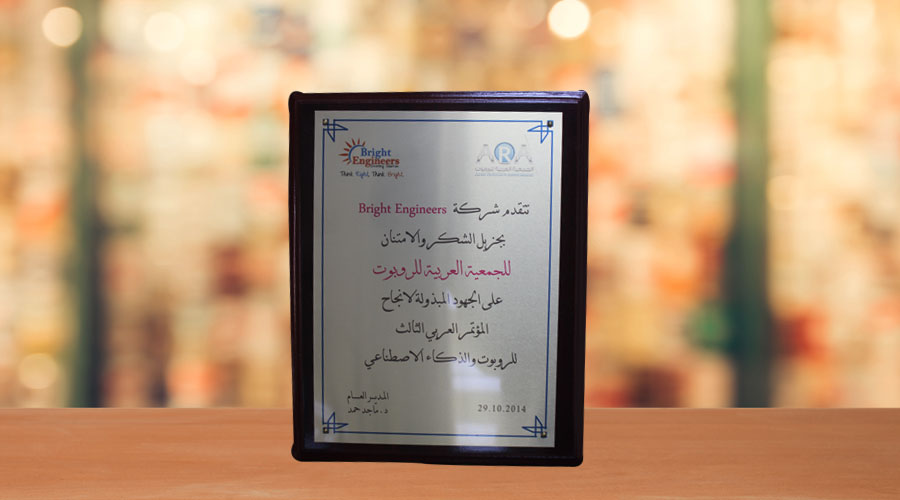 Bright
Engineers
Think Right, Think Bright
ARA
الجمعية العربية للروبوت
تتقدم شركة Bright Engineers
بجزيل الشكر والامتنان
للجمعية العربية للروبوت
على الجهود المبذولة لانجاح
المؤتمر العربي الثالث
للروبوت والذكاء الاصطناعي
المدير العام
د. ماجد حمد
29.10.2014